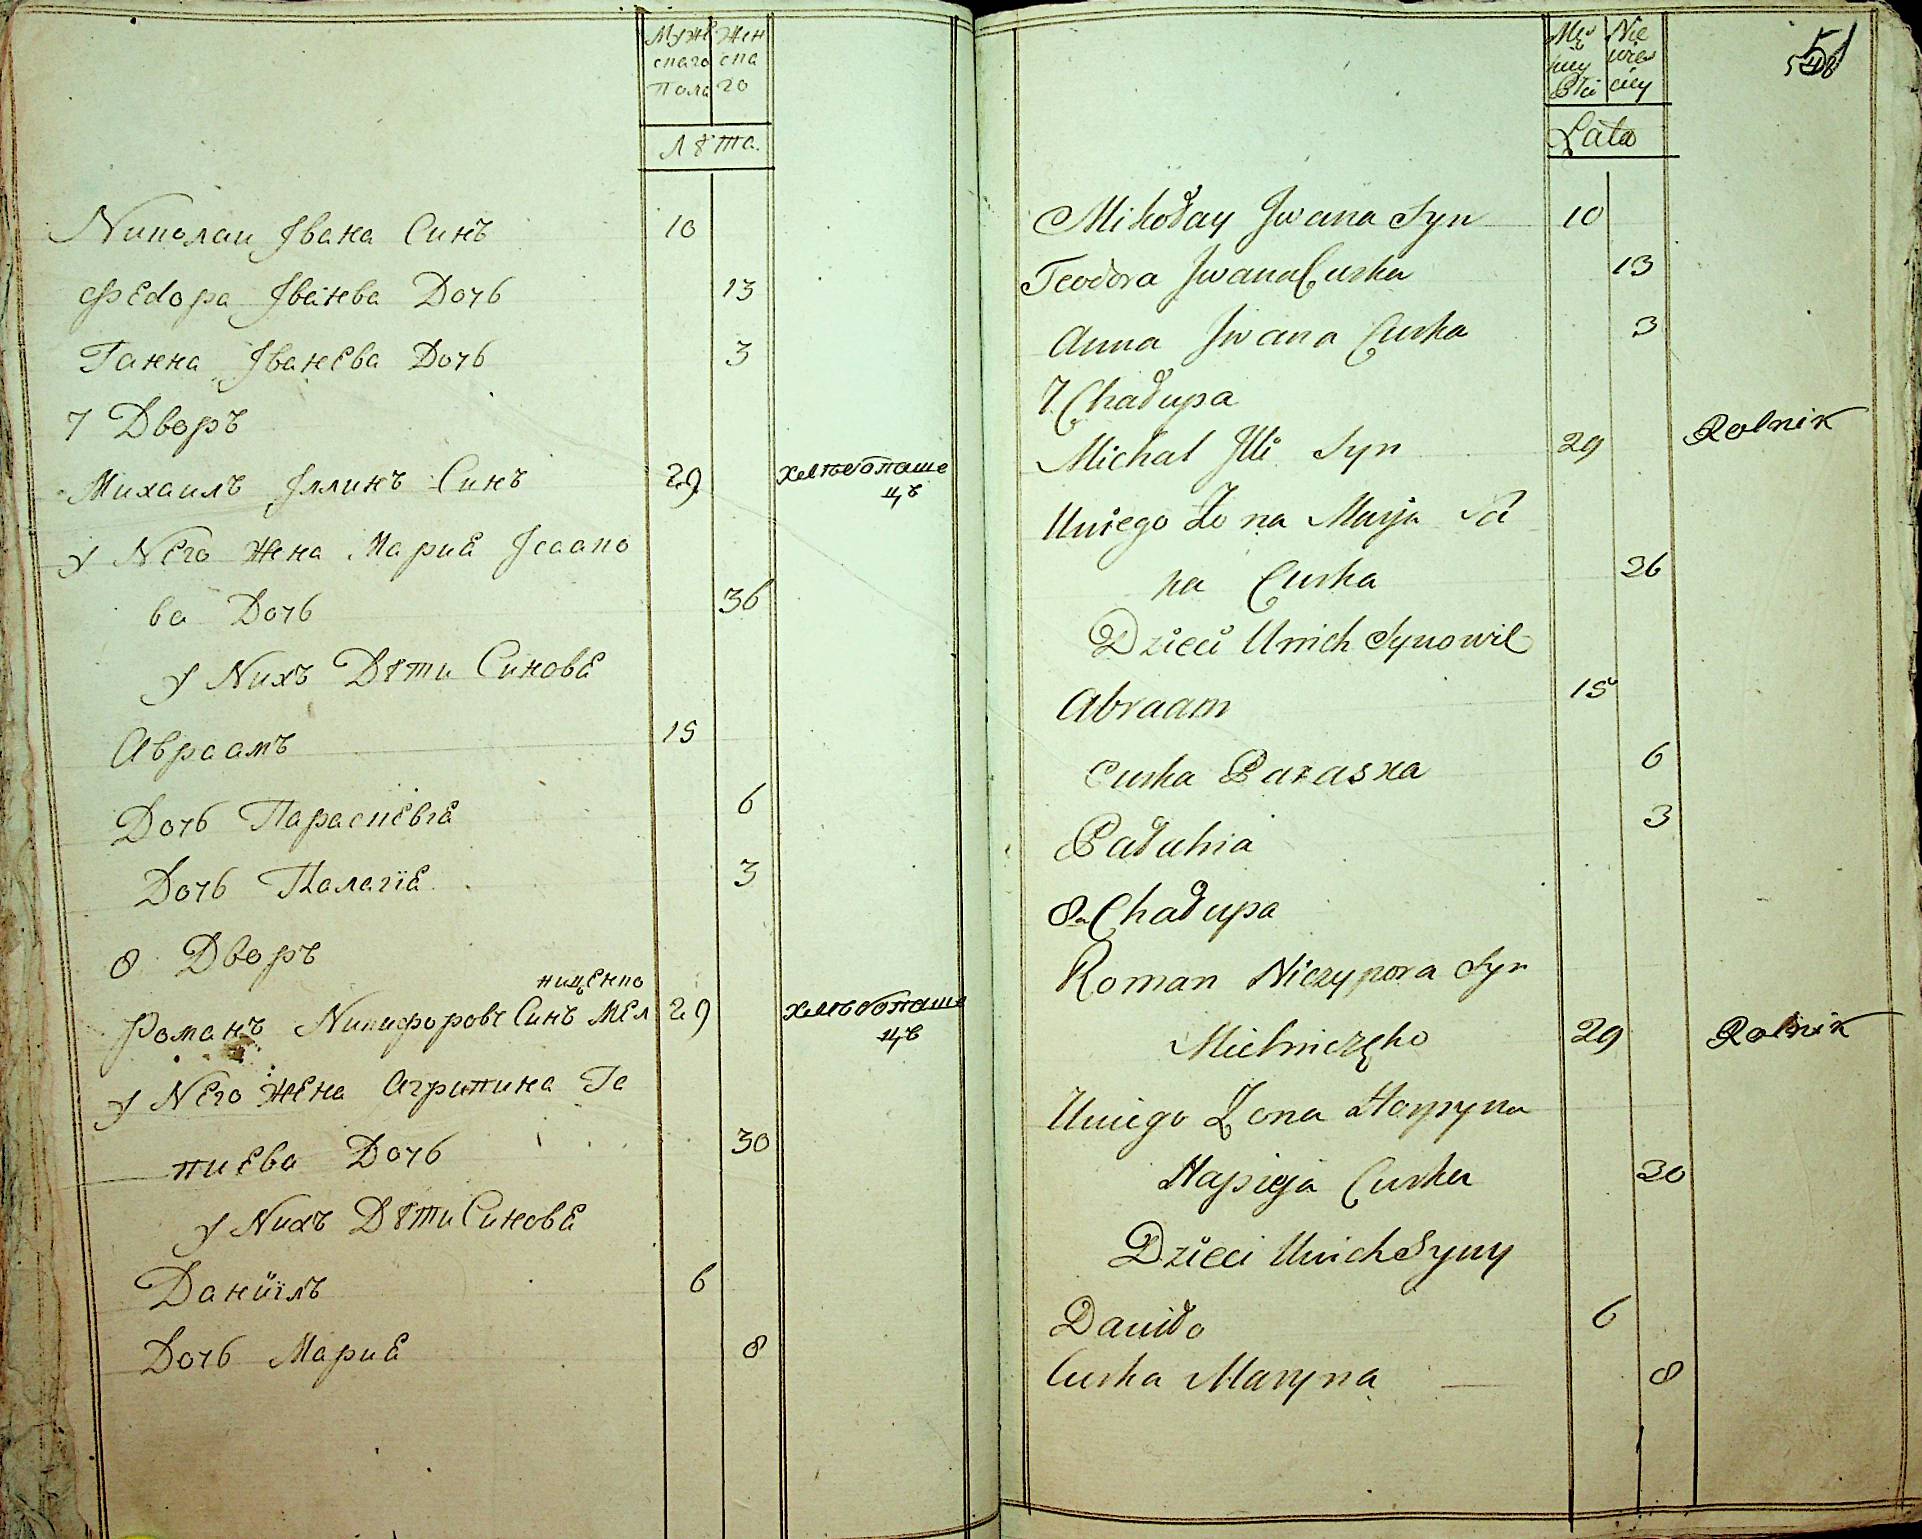 Муже Жен
скаго ска
Пола го
Лѣта.
Николаи Івана Синъ 10
Федора Іванева Дочь 13
Ганна Іванева Дочь 3
7 Дворъ
Михаилъ Іллинъ Синъ 29 хлѣбопаше
цъ
у Него Жена Мариа Ісаако
ва Дочь 36
у Нихъ Дѣти Синове
Авраамъ 15
Дочь Параскевіа 6
Дочь Палагіа 3
8 Дворъ
ниченко
Романъ Никифоровъ Синъ Мел 29 хлѣбопаше
цъ
у Него Жена Агрипина Га
пиева Дочь 30
у Нихъ Дѣти Синове
Даніилъ 6
Дочь Мариа 8
Nie
wies
ciey
Lata
51
Mikołay Jwana Syn 10
Teodora Jwana Curka 13
Anna Jwana Curka 3
7 Chałupa
Michał Illi Syn 29 Rolnik
Uniego Żona Marja Sa
ka Curka 26
Dzieci Unich Synowie
Abraam 15
Curka Paraska 6
Pałahia 3
8a Chałupa
Roman Niczypora Syn
Mielniczęko 29 Rolnik
Uniego Żona Horpyna
Hapieja Curka 30
Dzieci Unich Syny
Daniło 6
Curka Maryna 8